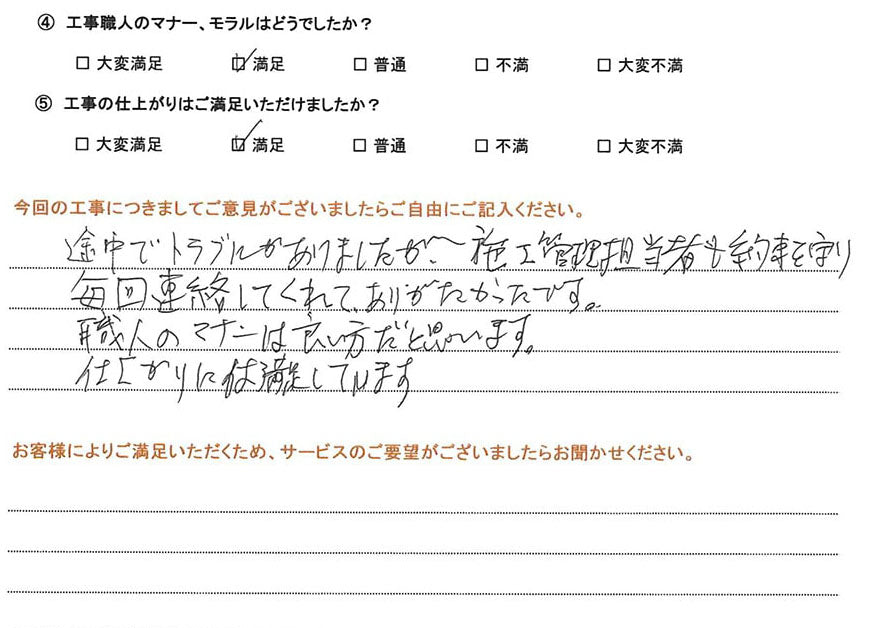 ④ 工事職人のマナー、モラルはどうでしたか？
□ 大変満足 ☑ 満足 □ 普通 □ 不満 □ 大変不満
⑤ 工事の仕上がりはご満足いただけましたか？
□ 大変満足 ☑ 満足 □ 普通 □ 不満 □ 大変不満
今回の工事につきましてご意見がございましたらご自由にご記入ください。
途中でトラブルがありましたが〜施工管理担当者も約束を守り
毎回連絡してくれて、ありがたかったです。
職人のマナーは良い方だと思います。
仕上がりには満足しています
お客様によりご満足いただくため、サービスのご要望がございましたらお聞かせください。